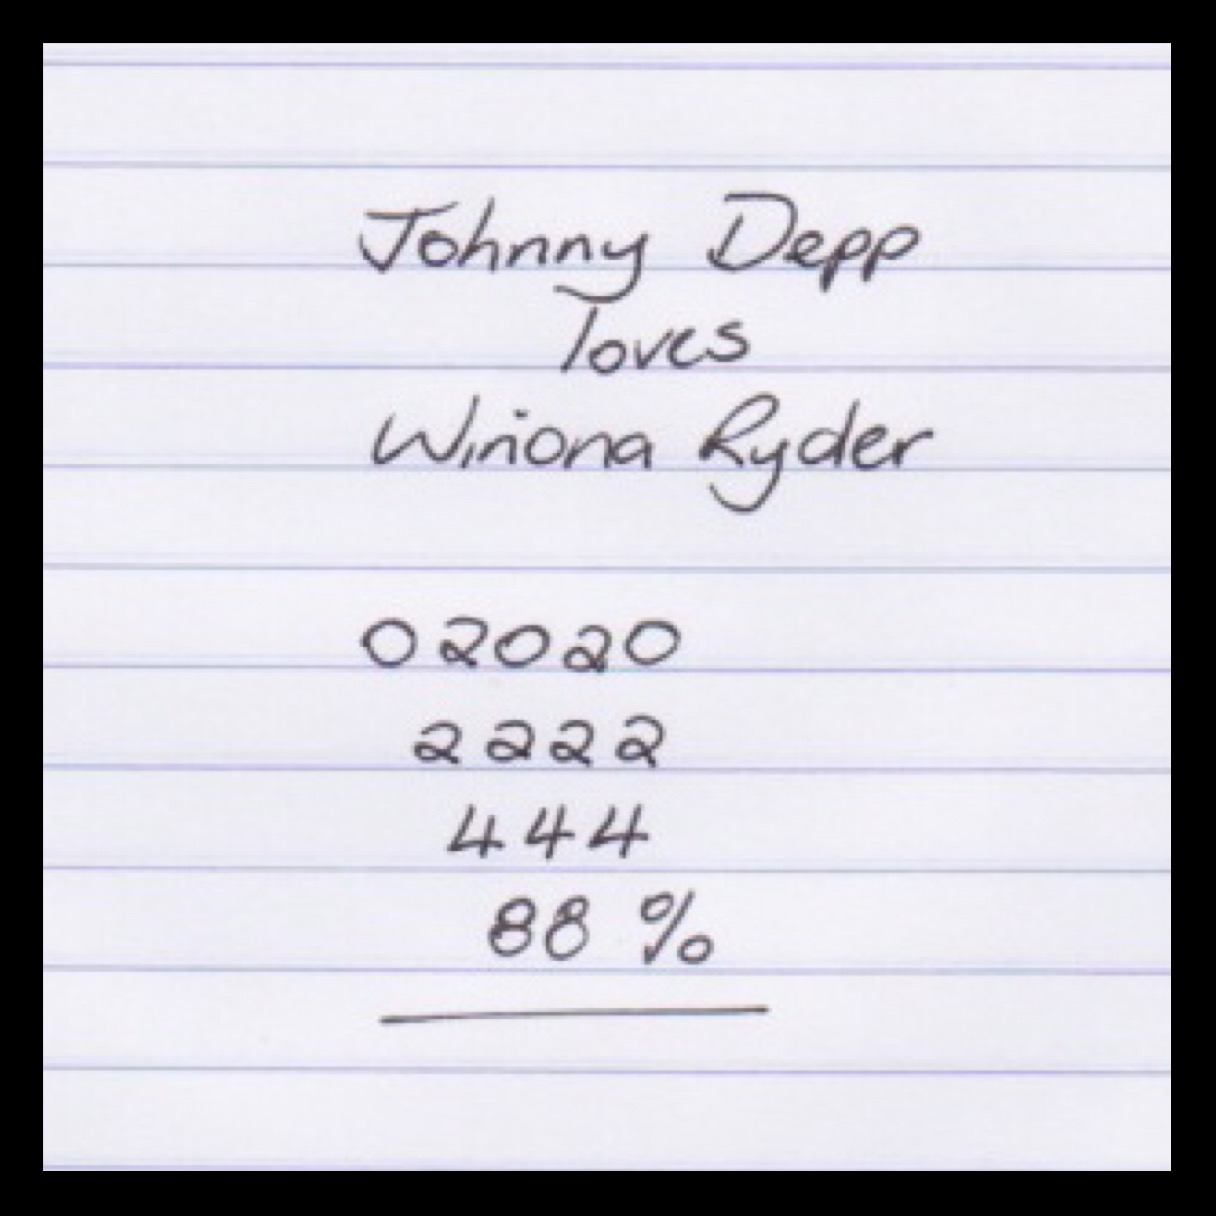 Johnny Depp
loves
Winona Ryder
02020
2222
444
88 %